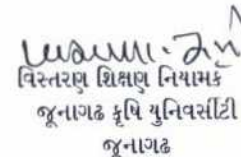 વિસ્તરણ શિક્ષણ નિયામક
જૂનાગઢ કૃષિ યુનિવર્સીટી
જૂનાગઢ